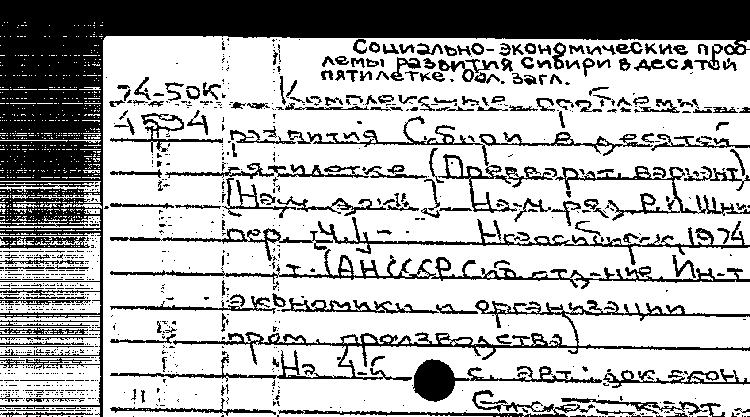 Социально-экономические проб-
лемы развития Сибири в десятой
пятилетке. Обл. загл.
74-50К
Комплексные проблемы
4594
развития Сибири в десятой
пятилетке (Предварит. вариант).
[Науч. докл.] Науч. ред. Р.И. Шни-
пер. Ч. 1- Новосибирск, 1974
т. (АН СССР. Сиб. отд-ние. Ин-т
экономики и организации
пром. производства)
На 4-й с. авт: док. экон.